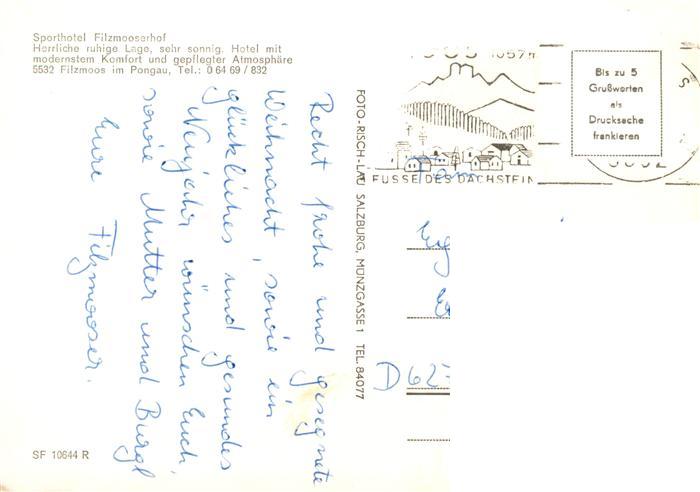 Sporthotel Filzmooserhof
Herrliche ruhige Lage, sehr sonnig. Hotel mit
modernstem Komfort und gepflegter Atmosphäre
5532 Filzmoos im Pongau, Tel.: 0 64 69 / 832
Recht frohe und gesegnete
Weihnacht, sowie ein
glückliches und gesundes
Neujahr wünschen Euch,
sowie Mutter und Burgl
Eure Filzmooser.
SF 10644 R
FOTO-RISCH-LAU SALZBURG, MÜNZGASSE 1 TEL. 84077
FUSSE DES DACHSTEIN
Bis zu 5
Grußworten
als
Drucksache
frankieren
D 62